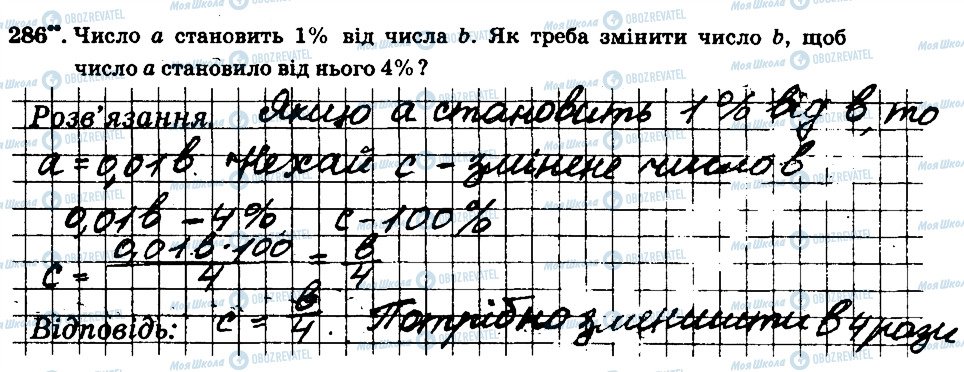 286••. Число a становить 1% від числа b. Як треба змінити число b, щоб
число a становило від нього 4%?
Розв'язання. Якщо а становить 1% від в, то
а = 0,01в. Нехай с – змінене число в.
0,01в – 4%   с – 100%
с = 0,01в·100/4 = в/4
Відповідь: с = в/4. Потрібно зменшити в 4 рази